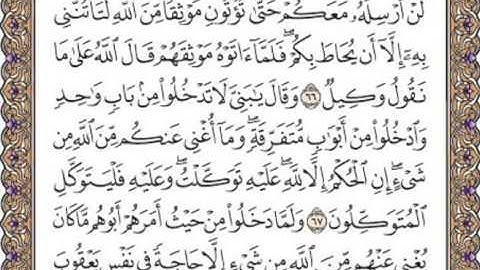 لَنْ أُرْسِلَهُۥ مَعَكُمْ حَتَّىٰ تُؤْتُونِ مَوْثِقًا مِّنَ ٱللَّهِ لَتَأْتُنَّنِى
بِهِۦٓ إِلَّآ أَن يُحَاطَ بِكُمْ ۖ فَلَمَّآ ءَاتَوْهُ مَوْثِقَهُمْ قَالَ ٱللَّهُ عَلَىٰ مَا
نَقُولُ وَكِيلٌ ٦٦ وَقَالَ يَٰبَنِىَّ لَا تَدْخُلُوا۟ مِنۢ بَابٍ وَٰحِدٍ
وَٱدْخُلُوا۟ مِنْ أَبْوَٰبٍ مُّتَفَرِّقَةٍ ۖ وَمَآ أُغْنِى عَنكُم مِّنَ ٱللَّهِ مِن
شَىْءٍ ۖ إِنِ ٱلْحُكْمُ إِلَّا لِلَّهِ ۖ عَلَيْهِ تَوَكَّلْتُ ۖ وَعَلَيْهِ فَلْيَتَوَكَّلِ
ٱلْمُتَوَكِّلُونَ ٦٧ وَلَمَّا دَخَلُوا۟ مِنْ حَيْثُ أَمَرَهُمْ أَبُوهُم مَّا كَانَ
يُغْنِى عَنْهُم مِّنَ ٱللَّهِ مِن شَىْءٍ إِلَّا حَاجَةً فِى نَفْسِ يَعْقُوبَ